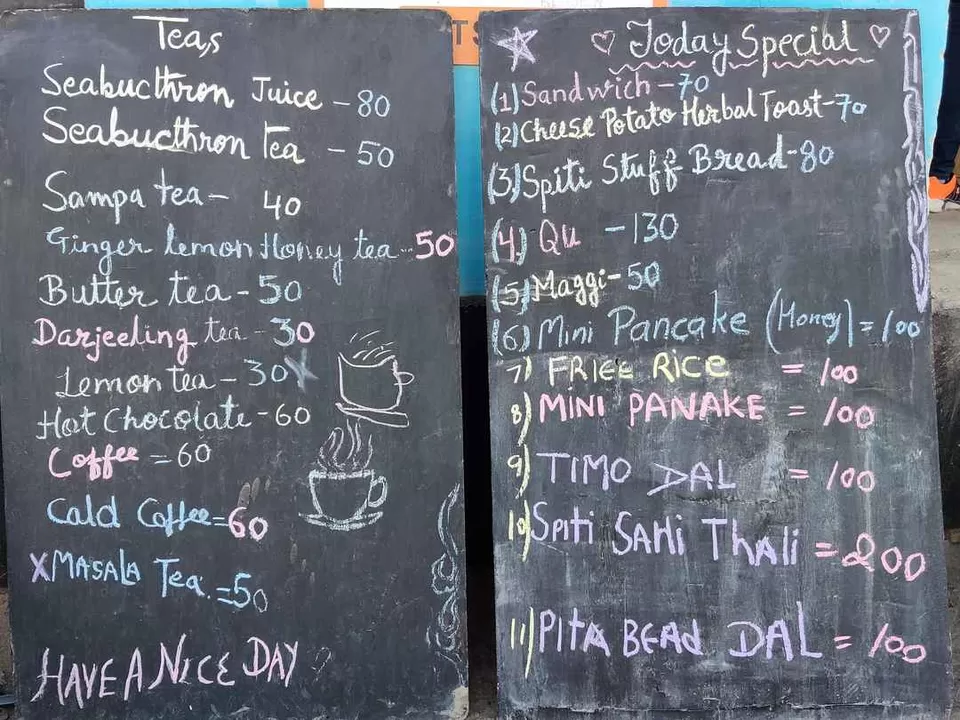 Teas
Seabucthron Juice - 80
Seabucthron Tea - 50
Sampa tea - 40
Ginger lemon Honey tea - 50
Butter tea - 50
Darjeeling tea - 30
Lemon tea - 30
Hot Chocolate - 60
Coffee = 60
Cald Coffee = 60
X MASALA Tea = 50
HAVE A NICE DAY
TS
Today Special
(1) Sandwich - 70
(2) Cheese Potato Herbal Toast - 70
(3) Spiti Stuff Bread - 80
(4) Qu - 130
(5) Maggi - 50
(6) Mini Pancake (Honey) = 100
7) FRIEE RICE = 100
8) MINI PANAKE = 100
9) TIMO DAL = 100
10) Spiti SAHi Thali = 200
11) PitA BEAd DAL = 100